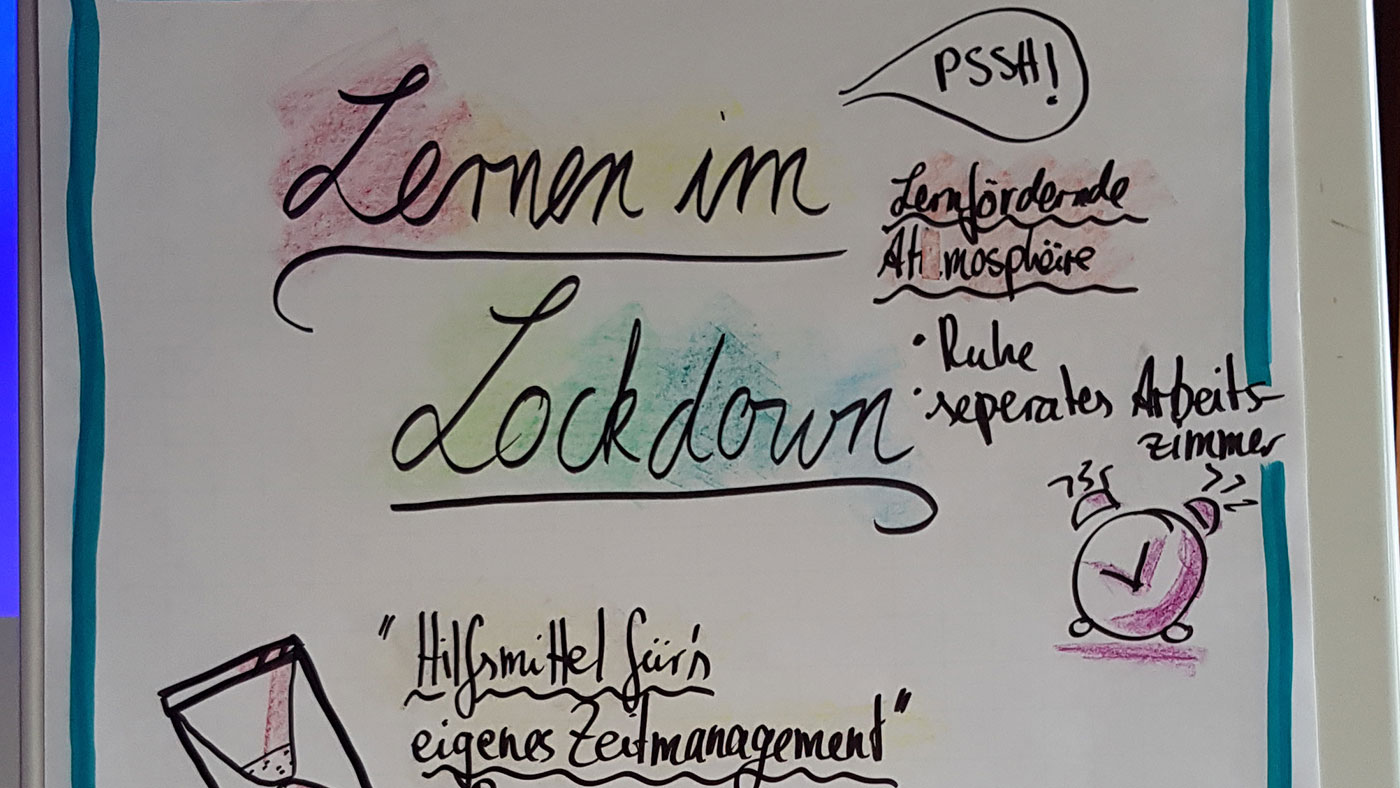 PSSH!
Lernen im
Lockdown
Lernfördernde
Atmosphäre
• Ruhe
• seperates Arbeits-
zimmer
"Hilfsmittel für's
eigenes Zeitmanagement"